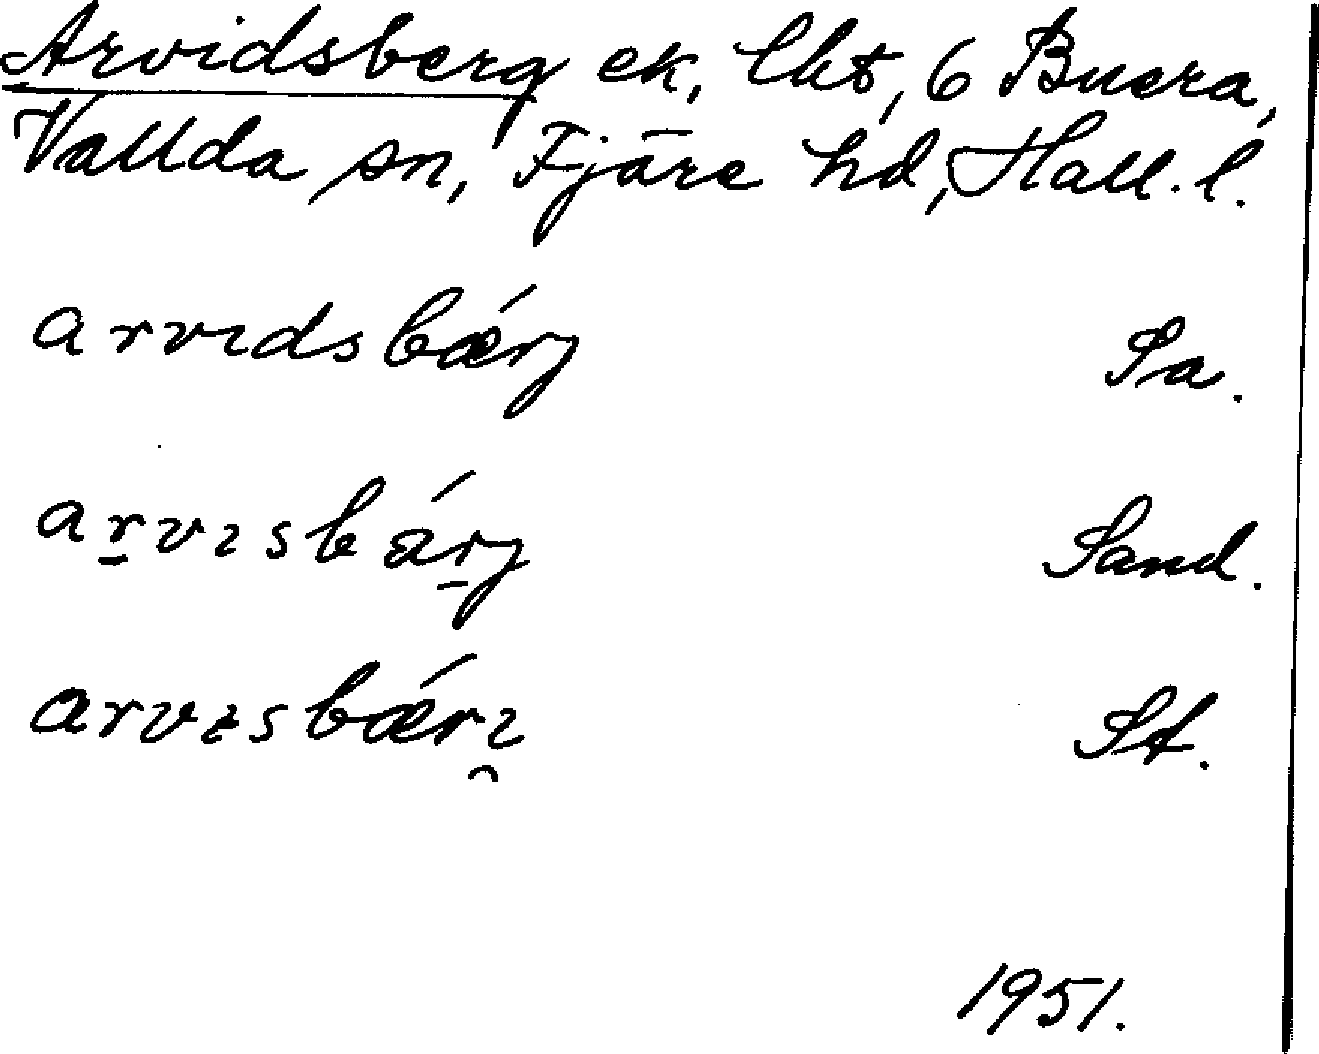 Arvidsberg ek, lht, 6 Buera,
Vallda sn, Fjäre hd, Hall. l.
arvɩdsbǽrj Sa.
ar̠vɩsbár̠j Sand.
arvɩsbǽrɩ̯ St.
1951.